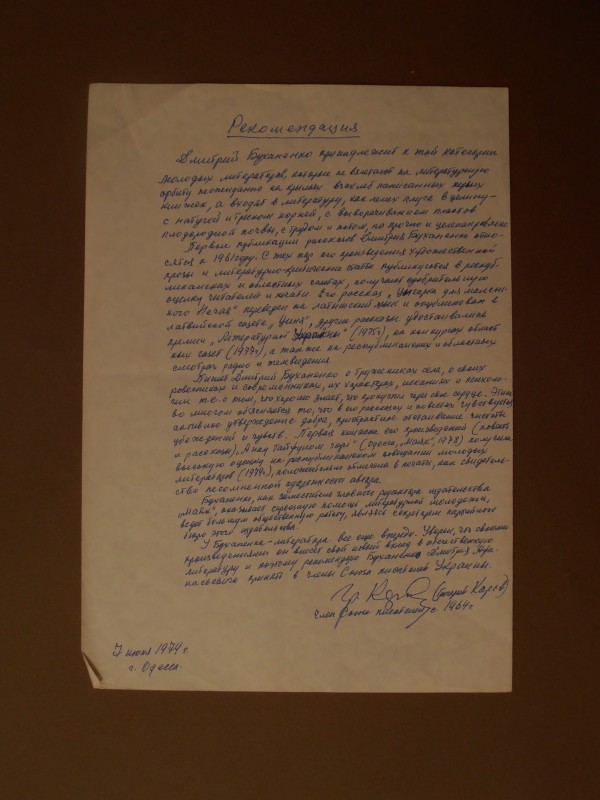 Рекомендация
Дмитрий Буханенко принадлежит к той категории
молодых литераторов, которые не взлетают на литературную
орбиту неожиданно на крыльях взахлеб написанных первых
книжек, а входят в литературу, как лемех плуга в целину –
с натугой и треском корней, с выворачиванием пластов
плодородной почвы, с трудом и потом, но прочно и целенаправленно
Первые публикации рассказов Дмитрия Буханенко отно-
сятся к 1961 году. С тех пор его произведения художественной
прозы и литературно-критические статьи публикуются в респуб-
ликанских и областных газетах, получают одобрительную
оценку читателей и печати. Его рассказ „ для малень-
кого " переведен на латышский язык и опубликован в
латвийской газете „Циня", другие рассказы удостаивались
премии „Литературной Украины" (1975г), на конкурсах област
ных газет (1977г), а также на республиканских и областных
смотрах радио и телевидения.
Пишет Дмитрий Буханенко о тружениках села, о своих
ровесниках и современниках, их характерах, механику и психоло-
гии т.е. о том, что хорошо знает, что пропустил через свое сердце. Этим
во многом объясняется то, что в его рассказах и повестях чувствуется
активное утверждение добра, пристрастное отстаивание чистоты
убеждений и чувств. Первая книжка его произведений (повесть
и рассказы) „ над Тайфуном горе" (Одесса, „Маяк", 1978) получила
высокую оценку на республиканском совещании молодых
литераторов (1979г), положительно отмечена в печати, как свидетель-
ство несомненной одаренности автора.
Буханенко, как заместитель главного редактора издательства
„Маяк", оказывает серьезную помощь литературной молодежи,
ведет большую общественную работу, являясь секретарем партийного
бюро этого издательства.
У Буханенко-литератора все еще впереди. Уверен, что своими
произведениями он внесет свой новый вклад в отечественную
литературу и поэтому рекомендую Буханенко Дмитрия Афа-
насьевича принять в члены Союза писателей Украины.
(Григорий Карев)
член Союза писателей с 1964г
7 июня 1979г.
г. Одесса.